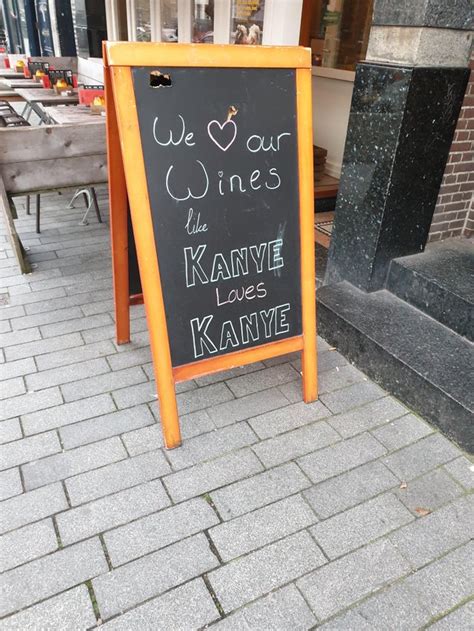 We ♡ our
Wines
like
KANYE
Loves
KANYE